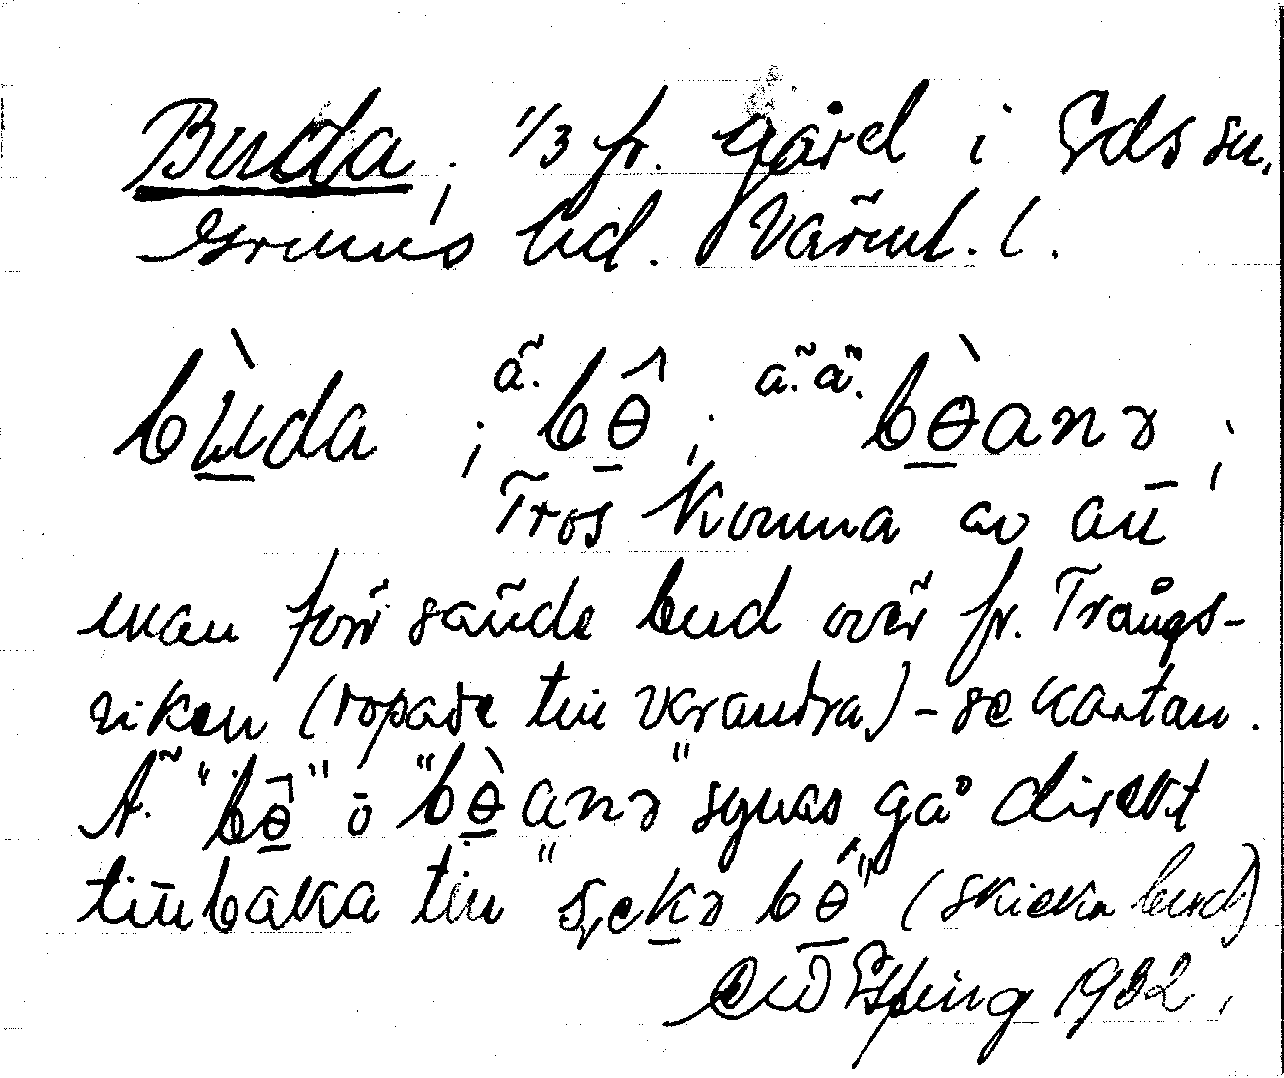 Buda, 1/3 fr. gård i Eds sn.
Grums hd. Värml. l.
bùda ; ä. bθ̂ ; ä.ä. bθ̀anɂ ;
Tros komma av att
man förr sände bud över fr. Trångs-
viken (ropade till varandra) - se kartan.
Ä. "bθ̂" o "bθ̀anɂ" synes gå direkt
tillbaka till "ʂekɂ bθ́" (skicka bud)
Espling 1932.